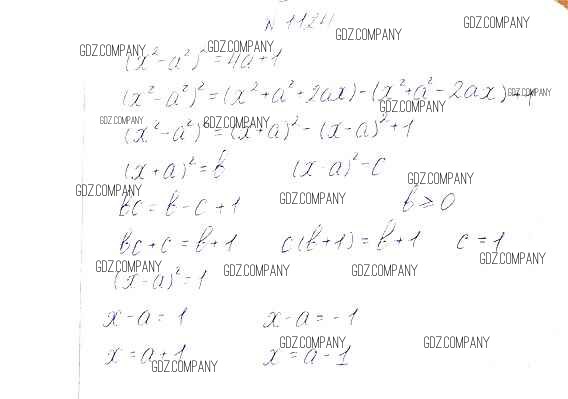 N 1124
GDZ.COMPANY GDZ.COMPANY GDZ.COMPANY GDZ.COMPANY
(x²-a²)² = 4a+1
(x²-a²)² = (x²+a²+2ax)-(x²+a²-2ax)+1
GDZ.COMPANY GDZ.COMPANY
GDZ.COMPANY GDZ.COMPANY
(x²-a²)² = (x+a)²-(x-a)²+1
(x+a)² = b (x-a)² = c
GDZ.COMPANY GDZ.COMPANY GDZ.COMPANY
bc = b-c+1 b ≥ 0
bc+c = b+1 c(b+1) = b+1 c = 1
GDZ.COMPANY GDZ.COMPANY GDZ.COMPANY GDZ.COMPANY
(x-a)² = 1
x-a = 1 x-a = -1
GDZ.COMPANY GDZ.COMPANY
x = a+1 x = a-1
GDZ.COMPANY